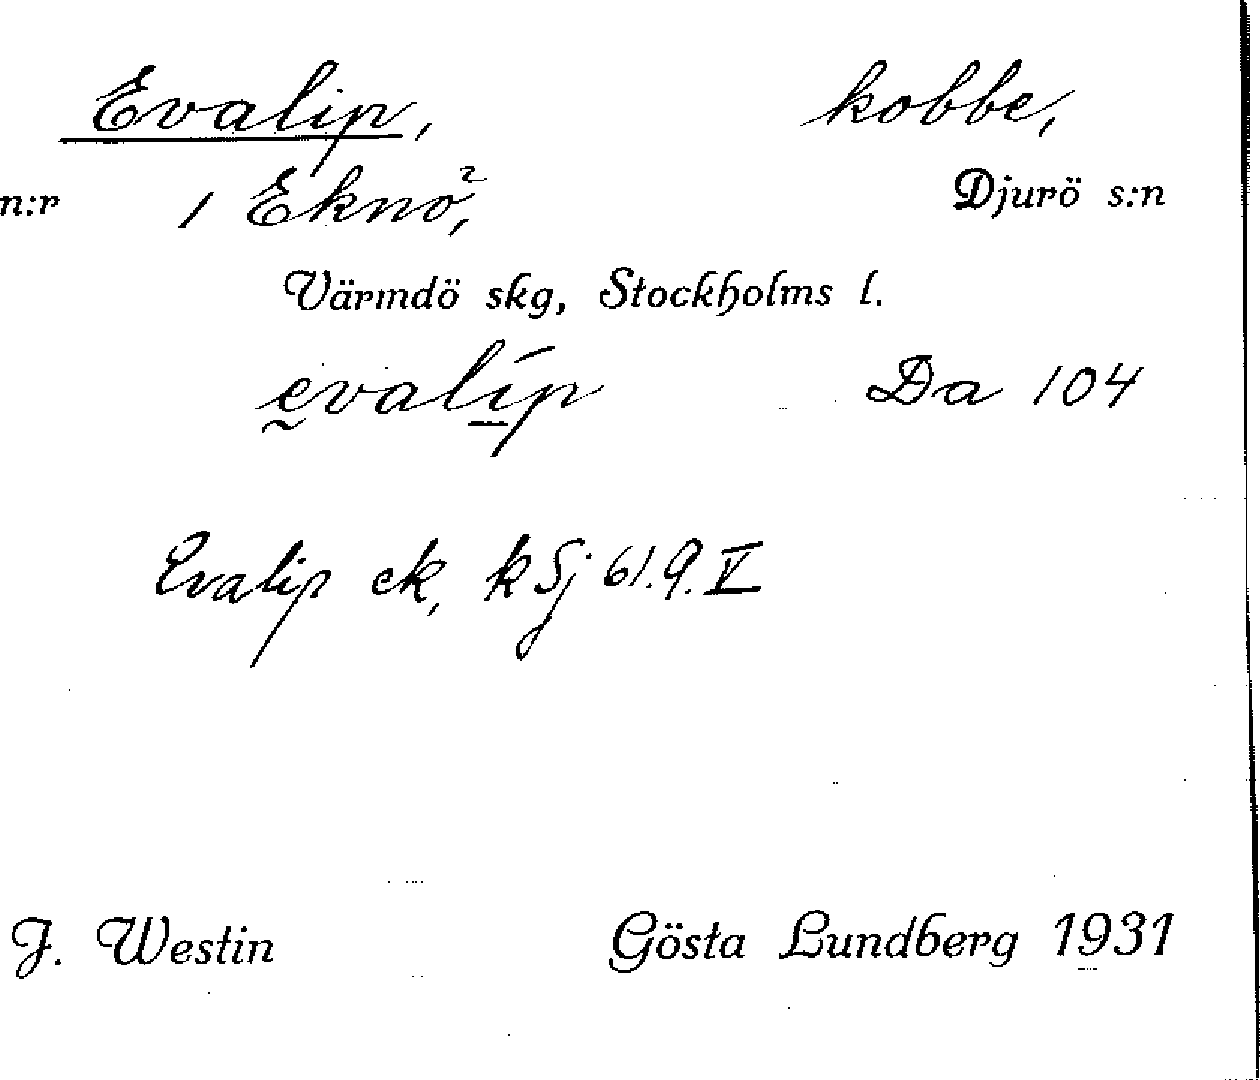 Evalip, kobbe,
n:r 1 Eknö, Djurö s:n
Värmdö skg, Stockholms l.
evalip Da 104
Evalip ek, k Sj 61.9.V
J. Westin Gösta Lundberg 1931